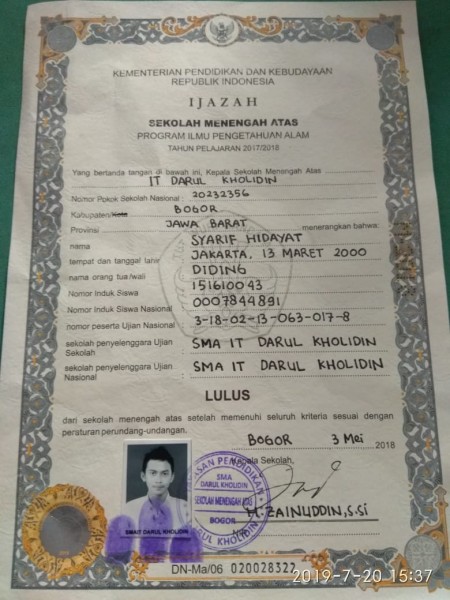 KEMENTERIAN PENDIDIKAN DAN KEBUDAYAAN
REPUBLIK INDONESIA
IJAZAH
SEKOLAH MENENGAH ATAS
PROGRAM ILMU PENGETAHUAN ALAM
TAHUN PELAJARAN 2017/2018
Yang bertanda tangan di bawah ini, Kepala Sekolah Menengah Atas
IT DARUL KHOLIDIN
Nomor Pokok Sekolah Nasional : 20232356
Kabupaten/Kota : BOGOR
Provinsi : JAWA BARAT menerangkan bahwa:
nama : SYARIF HIDAYAT
tempat dan tanggal lahir : JAKARTA, 13 MARET 2000
nama orang tua/wali : DIDING
Nomor Induk Siswa : 151610043
Nomor Induk Siswa Nasional : 0007844891
nomor peserta Ujian Nasional : 3-18-02-13-063-017-8
sekolah penyelenggara Ujian Sekolah : SMA IT DARUL KHOLIDIN
sekolah penyelenggara Ujian Nasional : SMA IT DARUL KHOLIDIN
LULUS
dari sekolah menengah atas setelah memenuhi seluruh kriteria sesuai dengan
peraturan perundang-undangan.
BOGOR, 3 Mei 2018
Kepala Sekolah,
YAYASAN PENDIDIKAN
SMA
DARUL KHOLIDIN
SEKOLAH MENENGAH ATAS
BOGOR
DARUL KHOLIDIN
M. ZAINUDDIN, S.Si
SMAIT DARUL KHOLIDIN
DN-Ma/06 020028322
2019-7-20 15:37